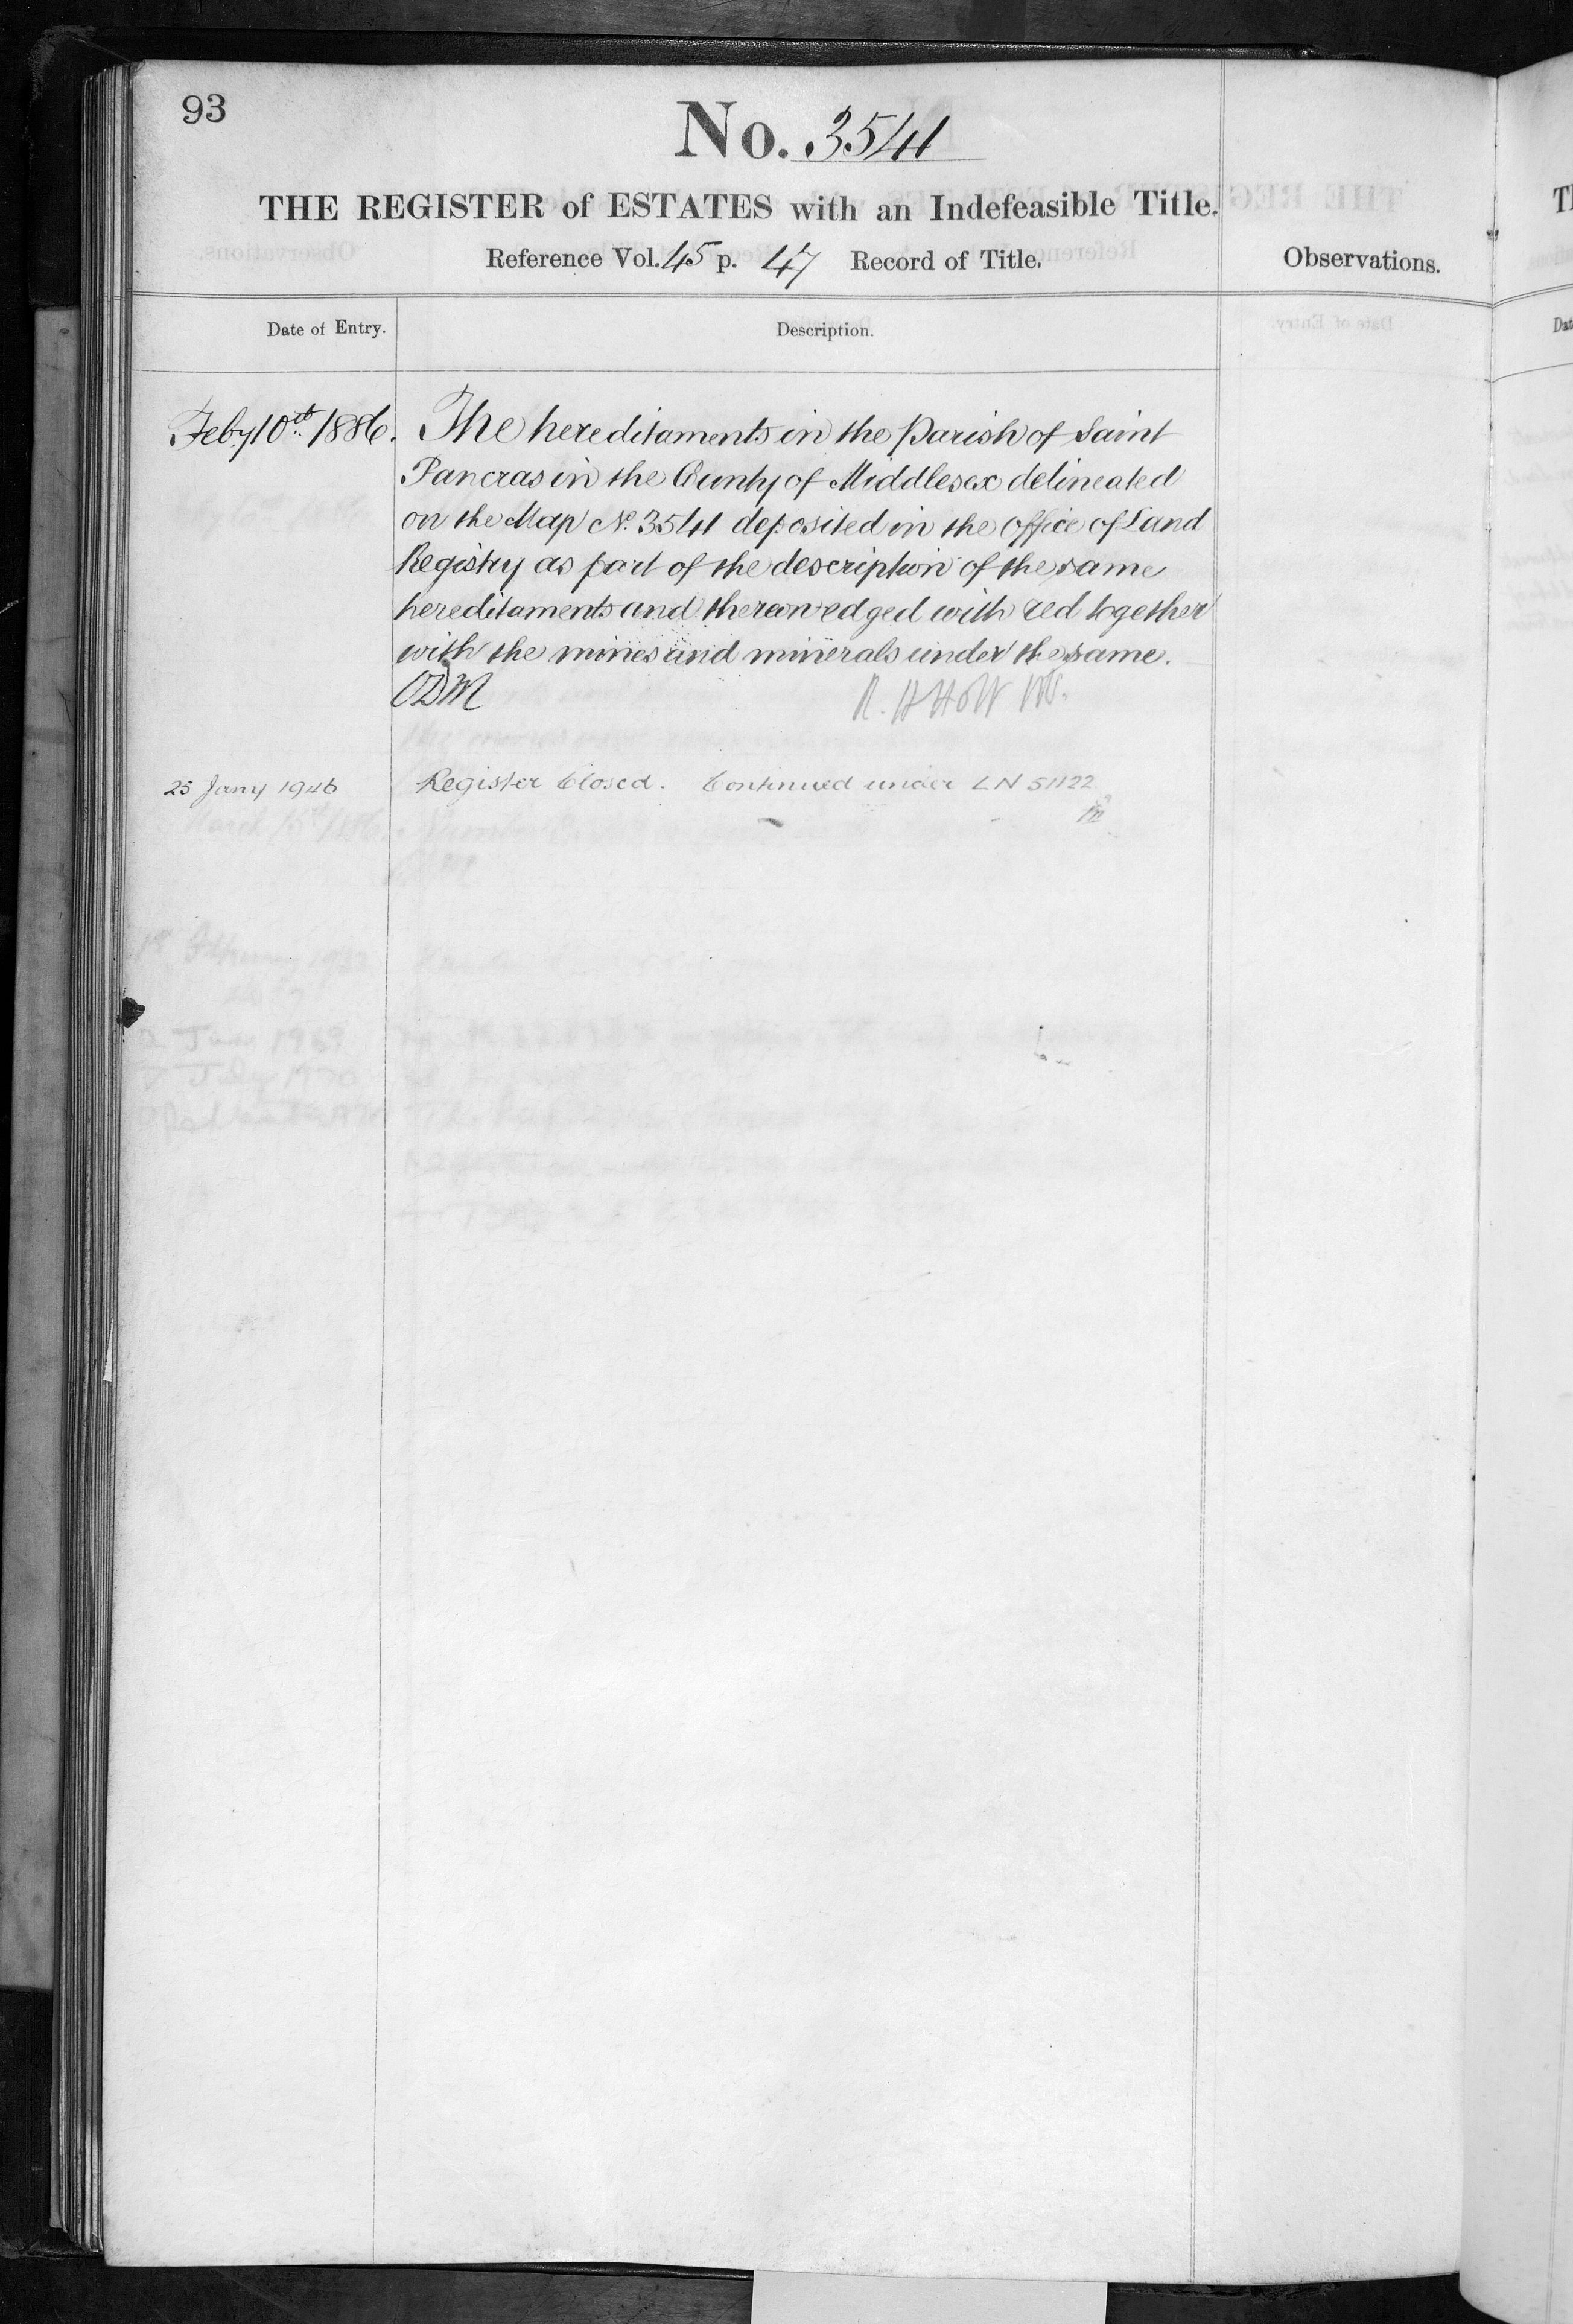 93
No. 3541
THE REGISTER of ESTATES with an Indefeasible Title.
Reference Vol. 45 p. 47 Record of Title.
Observations.
Date of Entry.
Description.
Feby 10th 1886. The hereditaments in the Parish of Saint
Pancras in the County of Middlesex delineated
on the Map No. 3541 deposited in the office of Land
Registry as part of the description of the same
hereditaments and thereon edged with red together
with the mines and minerals under the same.
25 Jany 1946 Register Closed. Continued under LN 51122